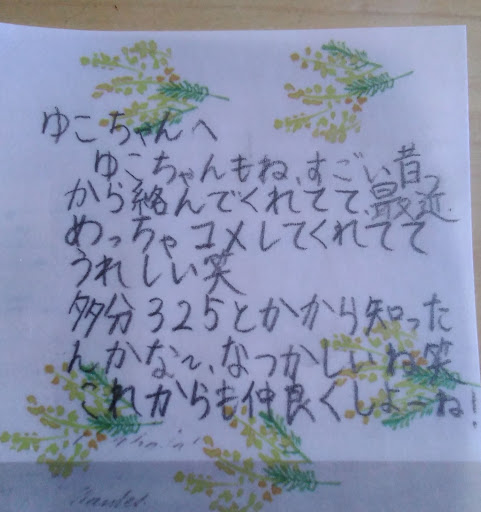 ゆこちゃんへ
ゆこちゃんもね、すごい昔っ
から絡んでくれてて、最近
めっちゃコメしてくれてて
うれしい笑
多分325とかから知った
んかな〜、なつかしいね笑
これからも仲良くしよーね!